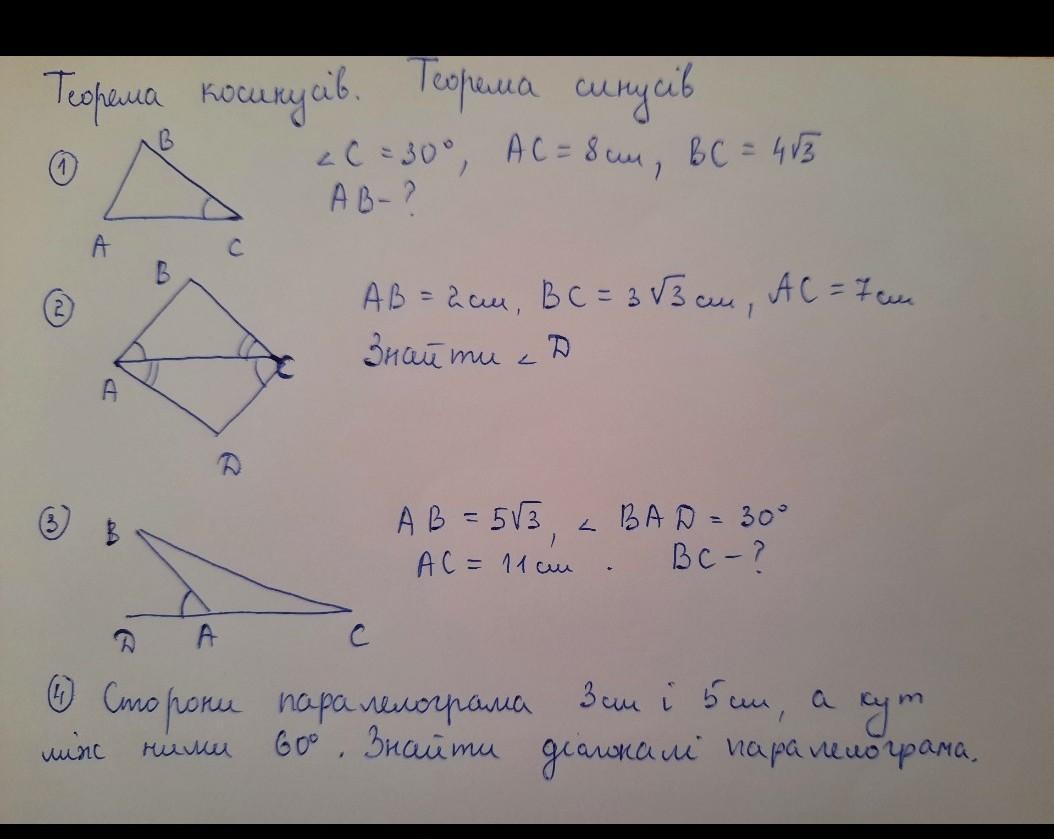 Теорема косинусів. Теорема синусів
① B ∠C = 30°, AC = 8см, BC = 4√3
AB - ?
A C
B
② AB = 2см, BC = 3√3 см, AC = 7см
Знайти ∠D
A C
D
③ B AB = 5√3, ∠BAD = 30°
AC = 11см. BC - ?
D A C
④ Сторони паралелограма 3см і 5см, а кут
між ними 60°. Знайти діагоналі паралелограма.